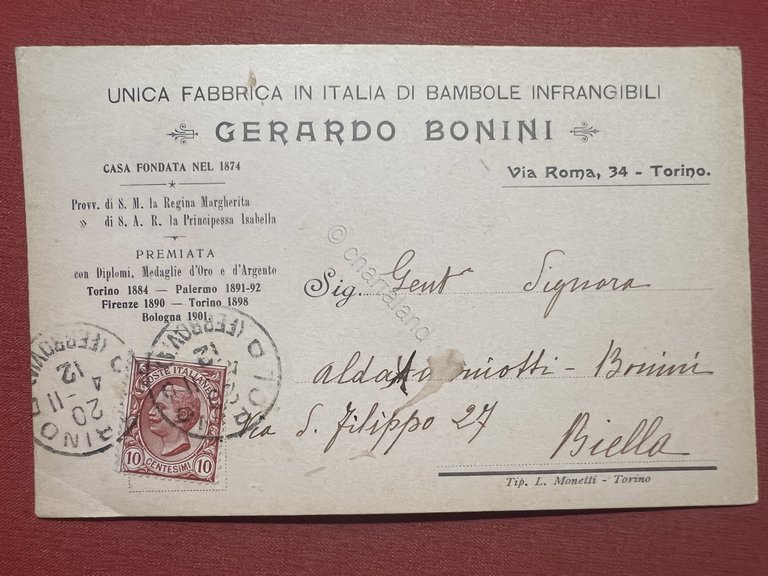 UNICA FABBRICA IN ITALIA DI BAMBOLE INFRANGIBILI
GERARDO BONINI
CASA FONDATA NEL 1874
Via Roma, 34 - Torino.
Provv. di S. M. la Regina Margherita
» di S. A. R. la Principessa Isabella
PREMIATA
con Diplomi, Medaglie d'Oro e d'Argento
Torino 1884 — Palermo 1891-92
Firenze 1890 — Torino 1898
Bologna 1901.
Sig. Gent^a Signora
Alda Bonini
Via S. Filippo 27
Biella
Tip. L. Monetti - Torino
POSTE ITALIANE
10 CENTESIMI 10
TORINO (FERROVIA)
20-11
4
12
TORINO (FERROV
© chartaland